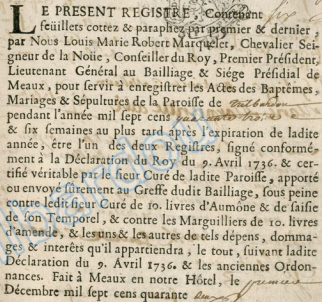 LE PRESENT REGISTRE, Contenant six
feüillets cottez & paraphez par premier & dernier,
par Nous Louis Marie Robert Marquelet, Chevalier Sei-
gneur de la Noüe, Conseiller du Roy, Premier Président,
Lieutenant Général au Bailliage & Siége Présidial de
Meaux, pour servir à enregistrer les Actes des Baptêmes,
Mariages & Sépultures de la Paroisse de
pendant l'année mil sept cens quarante trois
& six semaines au plus tard après l'expiration de ladite
année, être l'un des deux Registres, signé conformé-
ment à la Déclaration du Roy du 9. Avril 1736. & cer-
tifié véritable par le sieur Curé de ladite Paroisse, apporté
ou envoyé sûrement au Greffe dudit Bailliage, sous peine
contre ledit sieur Curé de 10. livres d'Aumône & de saisie
de son Temporel, & contre les Marguilliers de 10. livres
d'amende, & les uns & les autres de tels dépens, domma-
ges & interêts qu'il appartiendra, le tout, suivant ladite
Déclaration du 9. Avril 1736. & les anciennes Ordon-
nances. Fait à Meaux en notre Hôtel, le premier
Décembre mil sept cens quarante deux